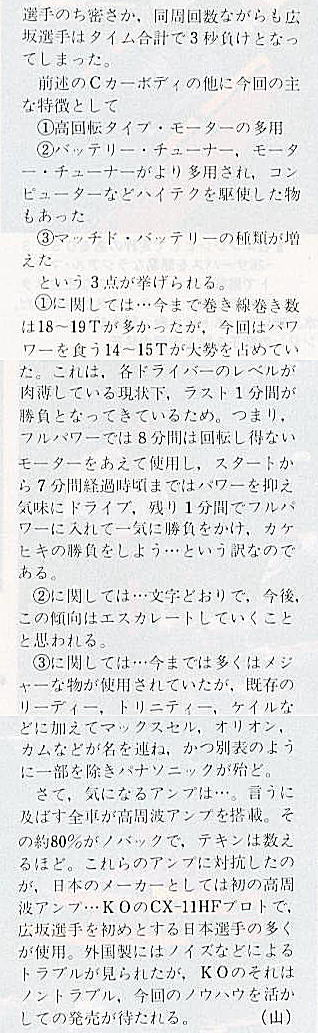 選手のち密さか，同周回数ながらも広
坂選手はタイム合計で3秒負けとなっ
てしまった。
前述のCカーボディの他に今回の主
な特徴として
①高回転タイプ・モーターの多用
②バッテリー・チューナー，モータ
ー・チューナーがより多用され，コン
ピューターなどハイテクを駆使した物
もあった
③マッチド・バッテリーの種類が増
えた
という3点が挙げられる。
①に関しては…今まで巻き線巻き数
は18〜19Tが多かったが，今回はパワ
ワーを食う14〜15Tが大勢を占めてい
た。これは，各ドライバーのレベルが
肉薄している現状下，ラスト1分間が
勝負となってきているため。つまり，
フルパワーでは8分間は回転し得ない
モーターをあえて使用し，スタートか
ら7分間経過時頃まではパワーを抑え
気味にドライブ，残り1分間でフルパ
ワーに入れて一気に勝負をかけ，カケ
ヒキの勝負をしよう…という訳なので
ある。
②に関しては…文字どおりで，今後，
この傾向はエスカレートしていくこと
と思われる。
③に関しては…今までは多くはメジ
ャーな物が使用されていたが，既存の
リーディー，トリニティー，ケイルな
どに加えてマックスセル，オリオン，
カムなどが名を連ね，かつ別表のよう
に一部を除きパナソニックが殆ど。
さて，気になるアンプは…。言うに
及ばす全車が高周波アンプを搭載。そ
の約80％がノバックで，テキンは数え
るほど。これらのアンプに対抗したの
が，日本のメーカーとしては初の高周
波アンプ…KOのCX-11HFプロトで，
広坂選手を初めとする日本選手の多く
が使用。外国製にはノイズなどによる
トラブルが見られたが，KOのそれは
ノントラブル，今回のノウハウを活か
しての発売が待たれる。　（山）